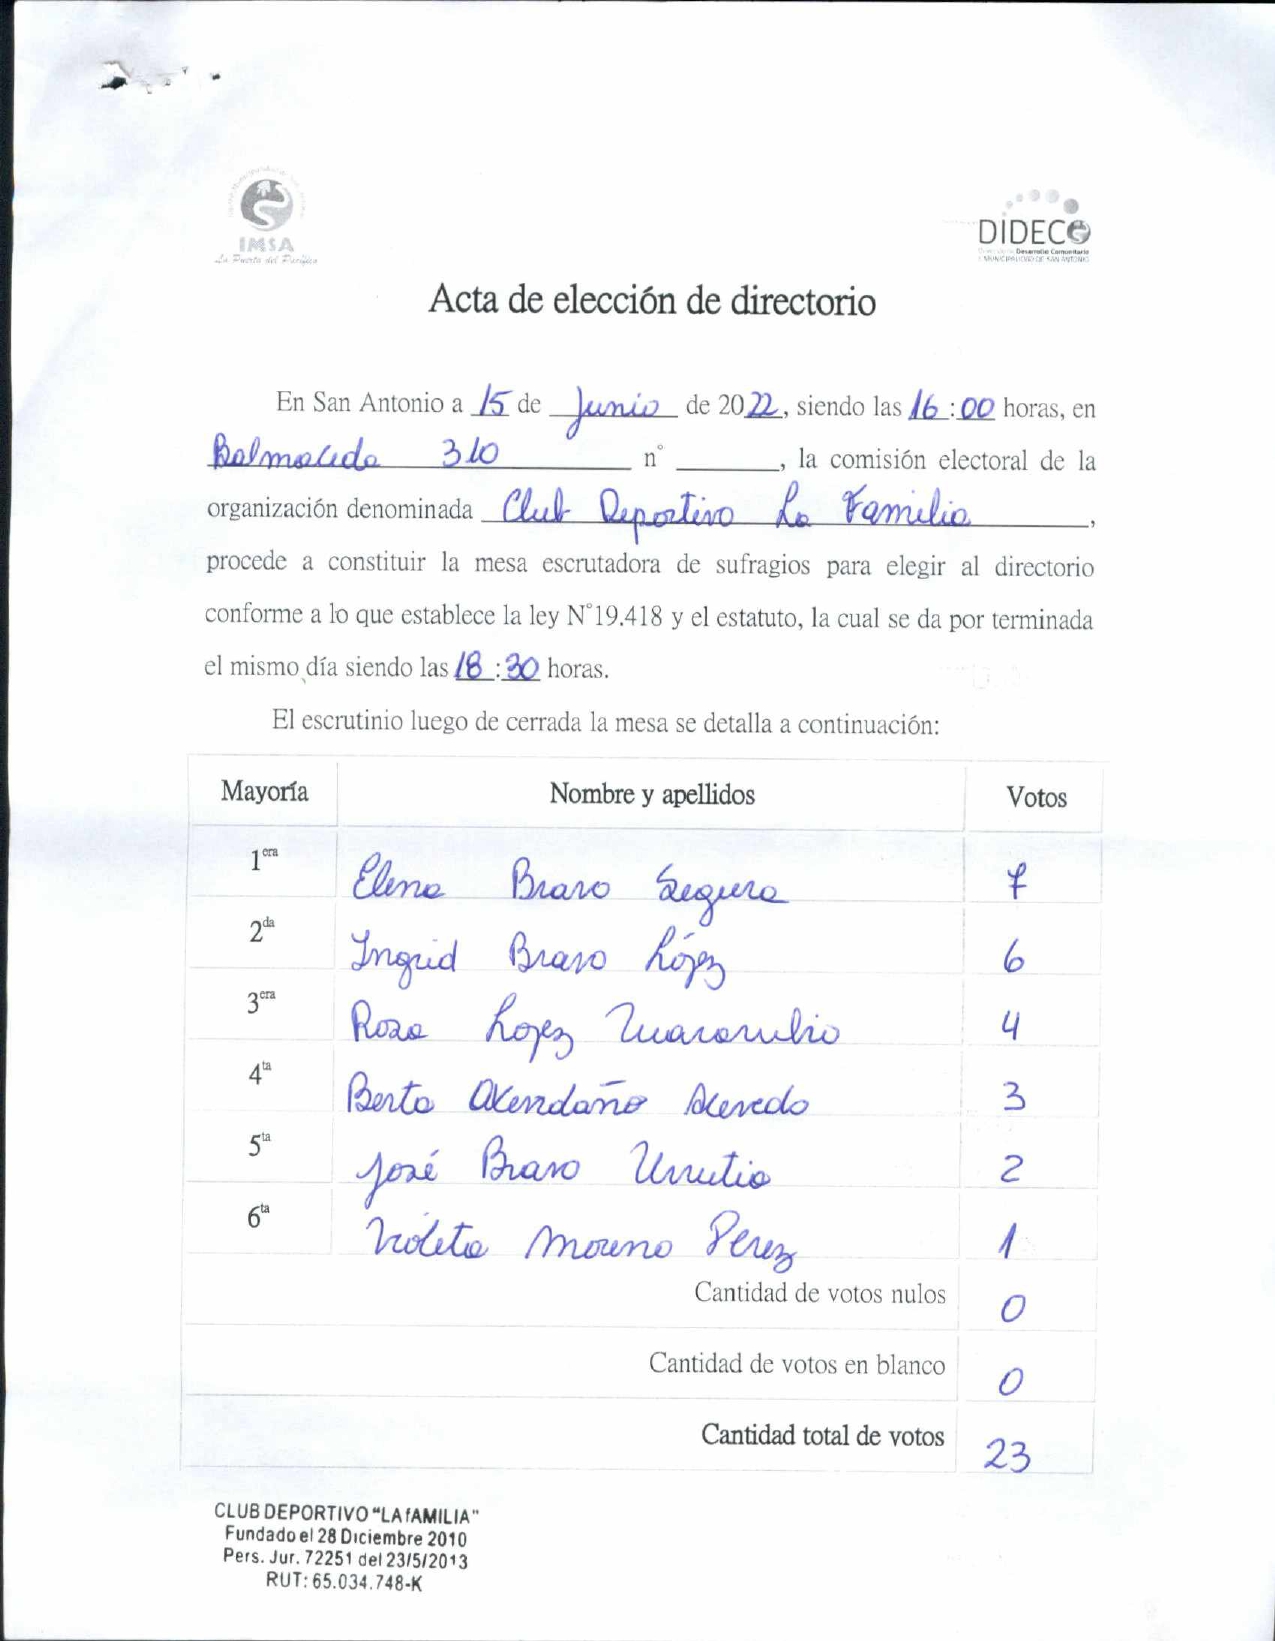 IMSA
La Puerta del Pacífico
DIDECO
Desarrollo Comunitario
I. MUNICIPALIDAD DE SAN ANTONIO
Acta de elección de directorio
En San Antonio a 15 de Junio de 2022, siendo las 16:00 horas, en
Balmaceda 310 n° , la comisión electoral de la
organización denominada Club Deportivo La Familia,
procede a constituir la mesa escrutadora de sufragios para elegir al directorio
conforme a lo que establece la ley N°19.418 y el estatuto, la cual se da por terminada
el mismo día siendo las 18:30 horas.
El escrutinio luego de cerrada la mesa se detalla a continuación:
Mayoría Nombre y apellidos Votos
1era Elena Bravo Segura 7
2da Ingrid Bravo López 6
3era Rosa Lopez 4
4ta Berta Avendaño Acevedo 3
5ta José Bravo Urrutia 2
6ta Violeta Moreno Perez 1
Cantidad de votos nulos 0
Cantidad de votos en blanco 0
Cantidad total de votos 23
CLUB DEPORTIVO "LA fAMILIA"
Fundado el 28 Diciembre 2010
Pers. Jur. 72251 del 23/5/2013
RUT: 65.034.748-K